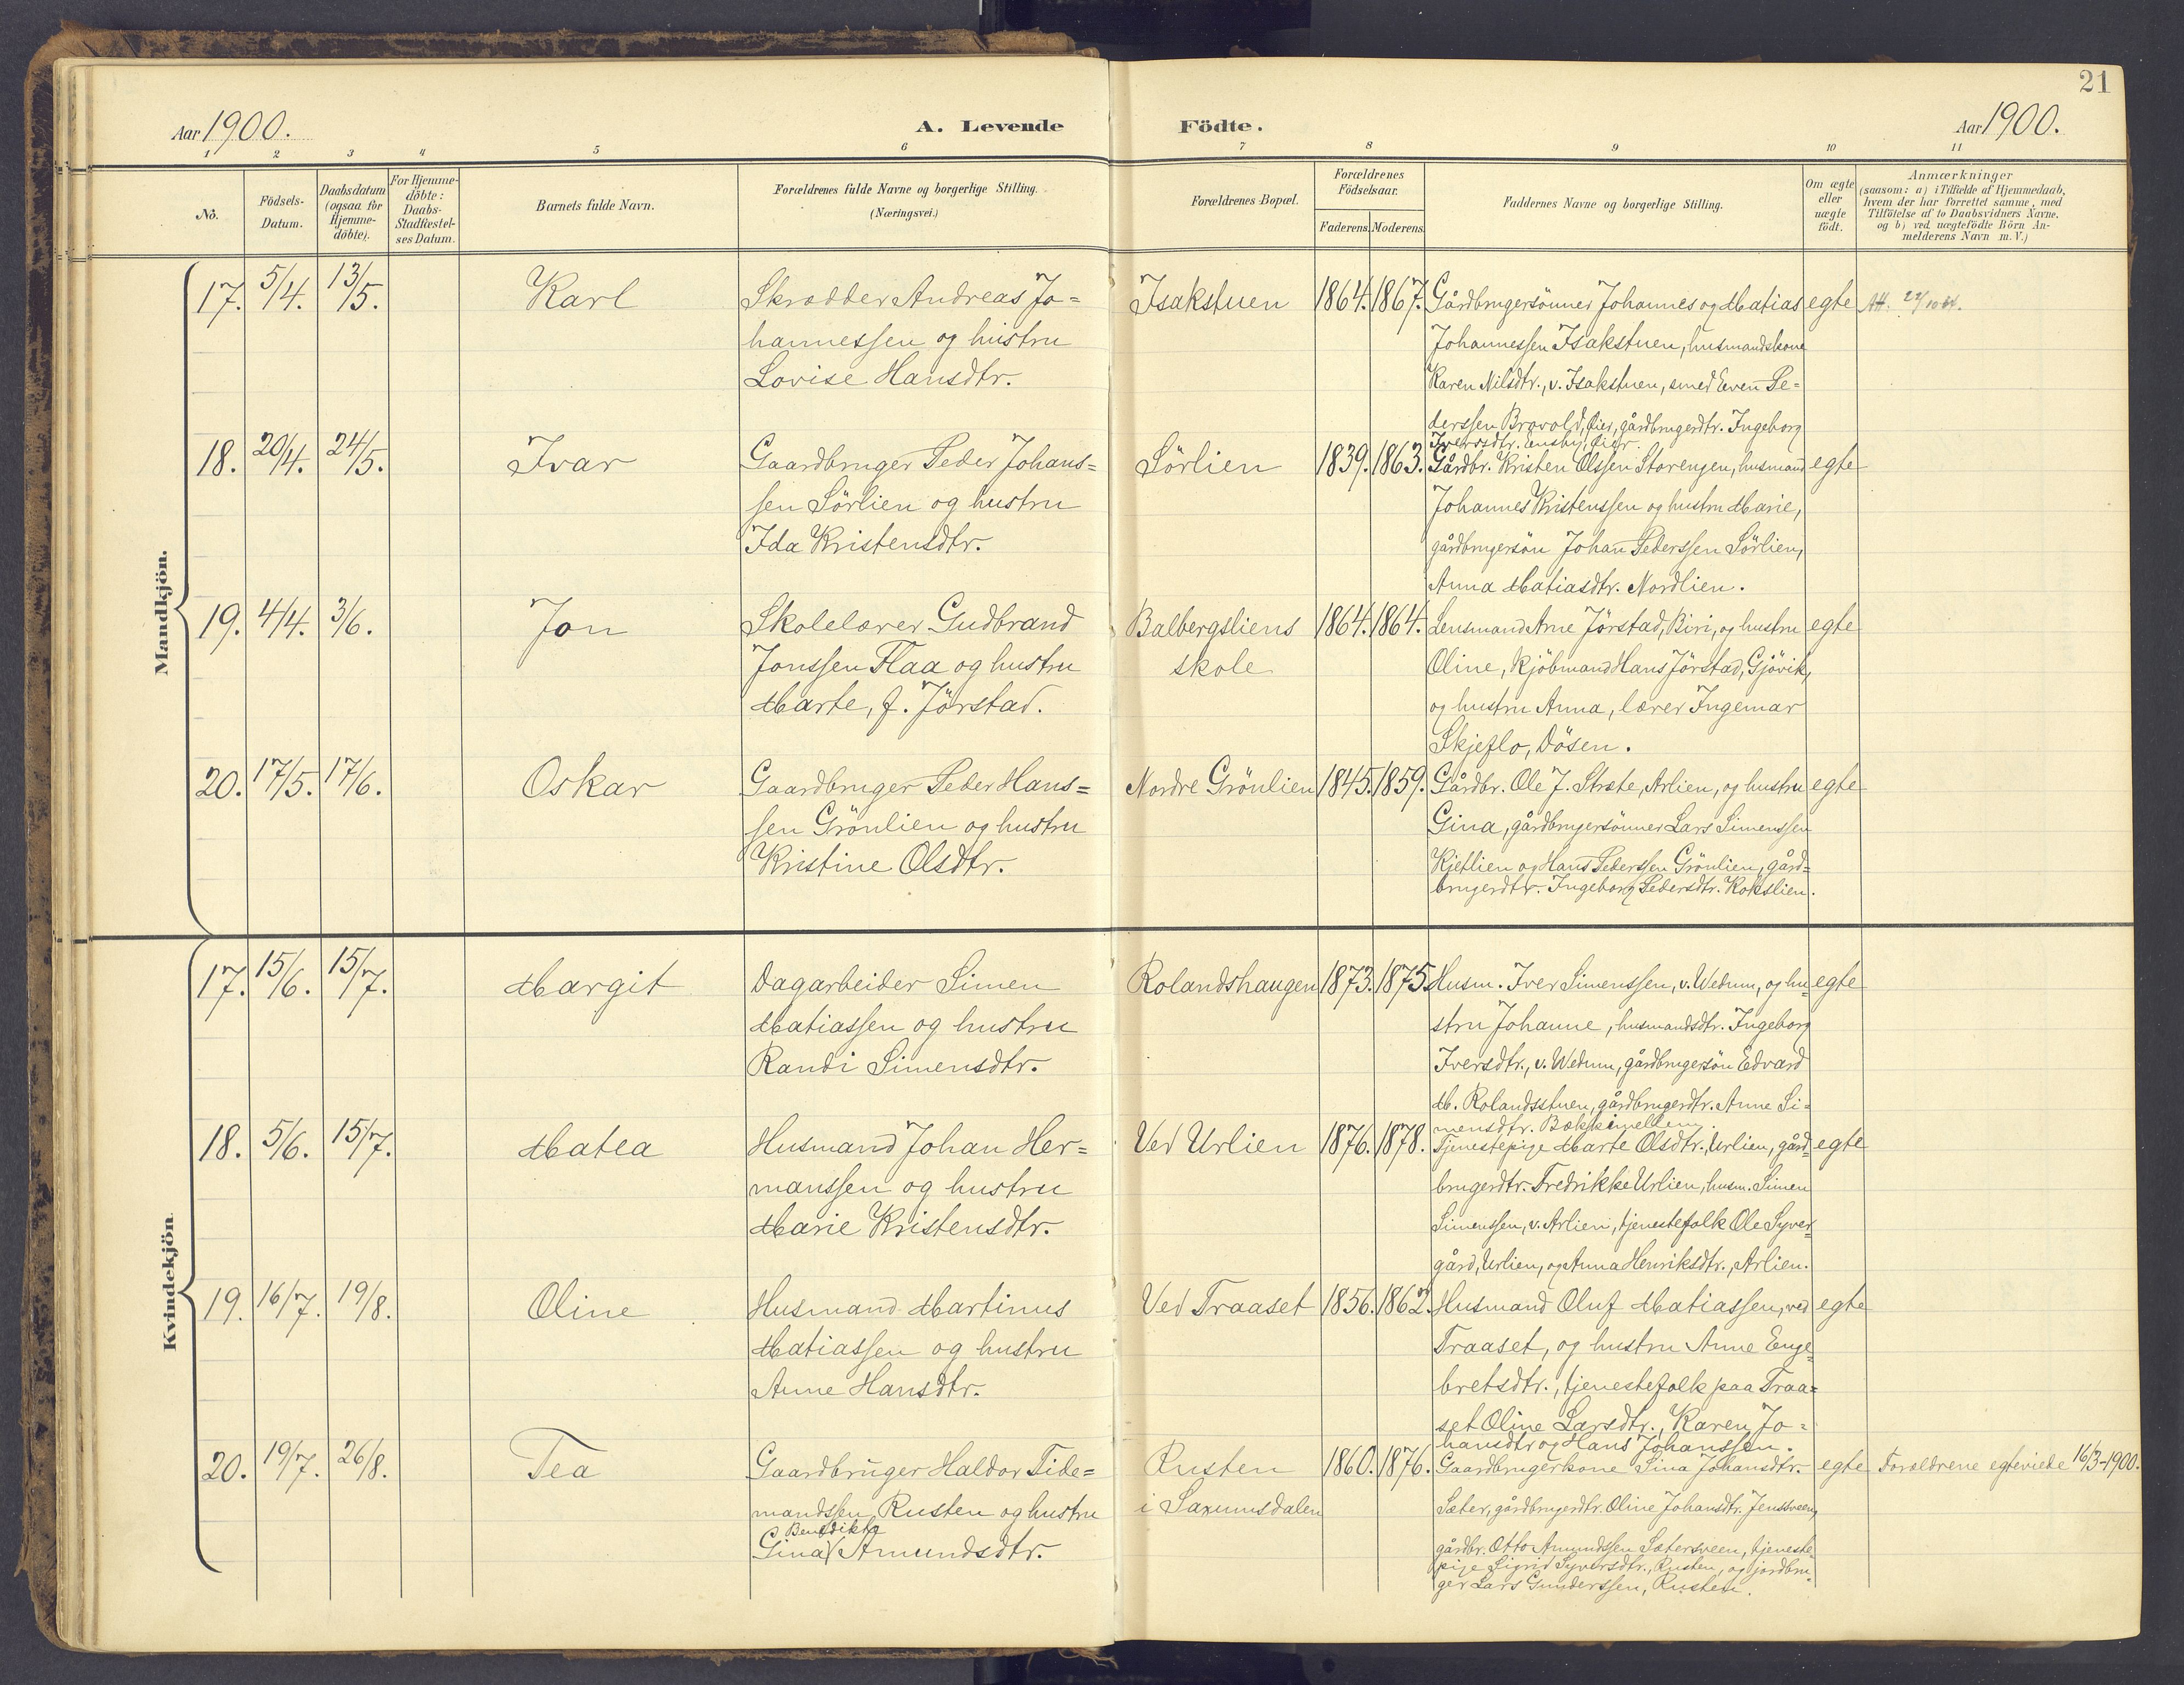 21
Aar 1900.
A. Levende Födte.
Aar 1900.
1 2 3 4 5 6 7 8 9 10 11
No.
Födsels-
Datum.
Daabsdatum
(ogsaa for
Hjemme-
döbte).
For Hjemme-
döbte:
Daabs-
Stadfæstel-
ses Datum.
Barnets fulde Navn.
Forældrenes fulde Navne og borgerlige Stilling.
(Næringsvei.)
Forældrenes Bopæl.
Forældrenes
Födselsaar.
Faderens. Moderens.
Faddernes Navne og borgerlige Stilling.
Om ægte
eller
uægte
födt.
Anmærkninger
(saasom: a) i Tilfælde af Hjemmedaab,
hvem der har forrettet samme, med
Tilföielse af to Daabsvidners Navne,
og b) ved uægtefödte Börn An-
melderens Navn m. V.)
Mandkjön.
17. 5/4. 13/5. Karl
Skrædder Andreas Jo=
hannessen og hustru
Lovise Hansdtr.
Isakstuen 1864. 1867.
Gårdbrugersönner Johannes og Matias
Johannessen Isakstuen, husmandskone
Karen Nilsdtr., v. Isakstuen, smed Even Pe=
derssen Brovold, Öier, gårdbrugerdtr. Ingeborg
Iversdtr. Öier.
egte
18. 20/4. 24/5. Ivar
Gaardbruger Peder Johans=
sen Sörlien og hustru
Ida Kristensdtr.
Sörlien 1839. 1863.
Gårdbr. Kristen Olssen Storengen, husmand
Johannes Kristenssen og hustru Marie,
gårdbrugersön Johan Pederssen Sörlien,
Anna Matiasdtr. Nordlien.
egte
19. 4/4. 3/6. Jon
Skolelærer Gudbrand
Jonssen Flaa og hustru
Marte, f. Jörstad.
Balbergsliens
skole
1864. 1864.
Lensmand Arne Jörstad, Biri, og hustru
Oline, kjöbmand Hans Jörstad, Gjövik,
og hustru Anna, lærer Ingemar
Skjeflo, Dösen.
egte
20. 17/5. 17/6. Oskar
Gaardbruger Peder Hans=
sen Grönlien og hustru
Kristine Olsdtr.
Nordre Grönlien 1845. 1859.
Gårdbr. Ole J. Stræte, Arlien, og hustru
Gina, gårdbrugersönner Lars Simenssen
Kjetlien og Hans Pederssen Grönlien, gård=
brugerdtr. Ingeborg Pedersdtr. Rokslien.
egte
Kvindekjön
17. 15/6. 15/7. Margit
Dagarbeider Simen
Matiassen og hustru
Randi Simensdtr.
Rolandshaugen 1873. 1875.
Husm. Iver Simenssen, v. Wedum, og hu=
stru Johanne, husmandsdtr. Ingeborg
Iversdtr., v. Wedum, gårdbrugersön Edvard
M. Rolandsstuen, gårdbrugerdtr. Anne Si=
mensdtr. Bækkimellem.
egte
18. 5/6. 15/7. Matea
Husmand Johan Her=
manssen og hustru
Marie Kristensdtr.
Ved Urlien 1876. 1878.
Tjenestepige Marte Olsdtr., Urlien, gård=
brugerdtr. Fredrikke Urlien, husm. Simen
Simenssen, v. Arlien, tjenestefolk Ole Syver
gård, Urlien, og Anna Henriksdtr., Arlien.
egte
19. 16/7. 19/8. Oline
Husmand Martinus
Matiassen og hustru
Anne Hansdtr.
Ved Traaset 1856. 1862.
Husmand Oluf Matiassen, ved
Traaset, og hustru Anne Enge=
bretsdtr., tjenestefolk paa Traa=
set Oline Larsdtr., Karen Jo=
hansdtr og Hans Johanssen.
egte
20. 19/7. 26/8. Tea
Gaardbruger Haldor Tide=
mandssen Rusten og hustru
Benedikta
Gina Amundsdtr.
Rusten
i Saxumsdalen
1860. 1876.
Gaardbrugerkone Sina Johansdtr.
Sæter, gårdbrugerdtr. Oline Johansdtr. Jenssveen,
gårdbr. Otto Amundssen Sætersveen, tjeneste
pige Sigrid Syversdtr., Rusten, og jordbru
ger Lars Gunderssen, Rusten.
egte
Forældrene egteviede 16/3-1900.